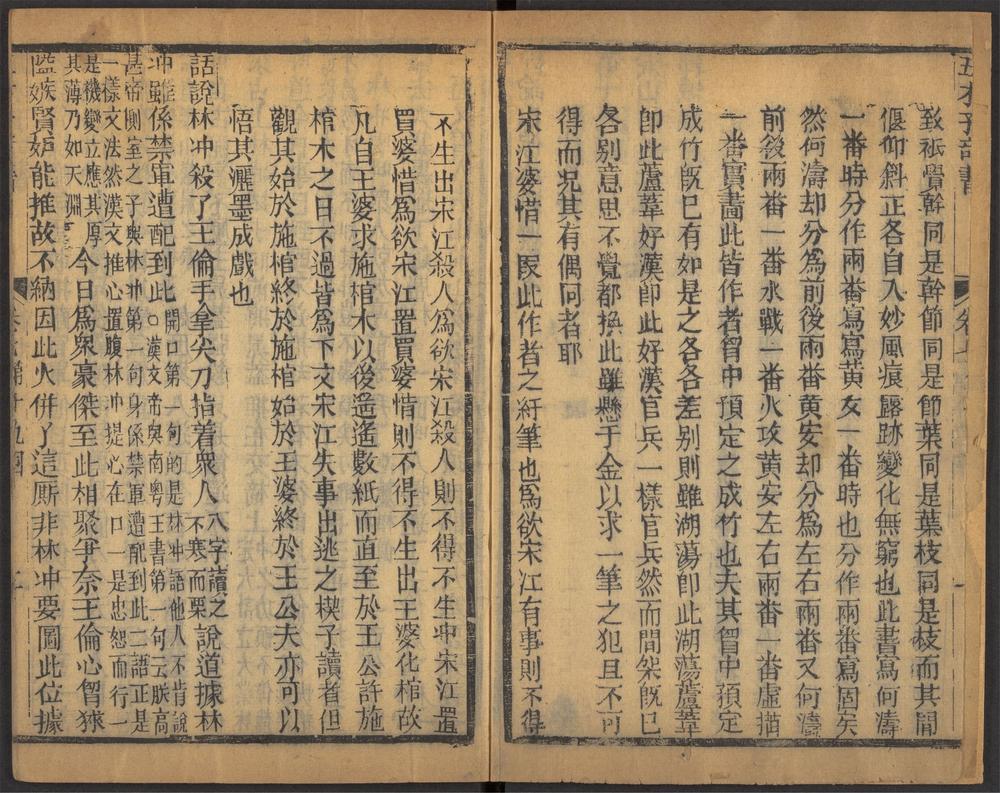 致衹覺幹同是幹節同是節葉同是葉枝同是枝而其間
偃仰斜正各自入妙風痕露跡變化無窮也此書寫何濤
一番時分作兩番寫寫黃安一番時也分作兩番寫固矣
然何濤却分爲前後兩番黃安却分爲左右兩番又何濤
前後兩番一番水戰一番火攻黃安左右兩番一番虛描
一番實畫此皆作者胷中預定之成竹也夫其胷中預定
成竹旣已有如是之各各差别則雖湖蕩卽此湖蕩蘆葦
卽此蘆葦好漢卽此好漢官兵一樣官兵然而間架旣已
各别意思不覺都換此雖懸千金以求一筆之犯且不可
得而况其有偶同者耶
宋江婆惜一段此作者之紆筆也爲欲宋江有事則不得
不生出宋江殺人爲欲宋江殺人則不得不生出宋江置
買婆惜爲欲宋江置買婆惜則不得不生出王婆化棺故
凡自王婆求施棺木以後遥遥數紙而直至於王公許施
棺木之日不過皆爲下文宋江失事出逃之楔子讀者但
觀其始於施棺終於施棺始於王婆終於王公夫亦可以
悟其灑墨成戲也
話說林冲殺了王倫手拿尖刀指着衆人八字讀之不寒而栗說道據林
冲雖係禁軍遭配到此開口第一句的是林冲語他人不肯說○漢文帝與南粤王書第一句云朕高
皇帝側室之子與林冲第一句身係禁軍遭配到此二語正是
一樣文法然漢文推心置腹林冲提心在口一是忠恕而行一
是機變立應其厚其薄乃如天淵今日爲衆豪傑至此相聚爭奈王倫心胷狹
隘嫉賢妒能推故不納因此火併了這厮非林冲要圖此位據